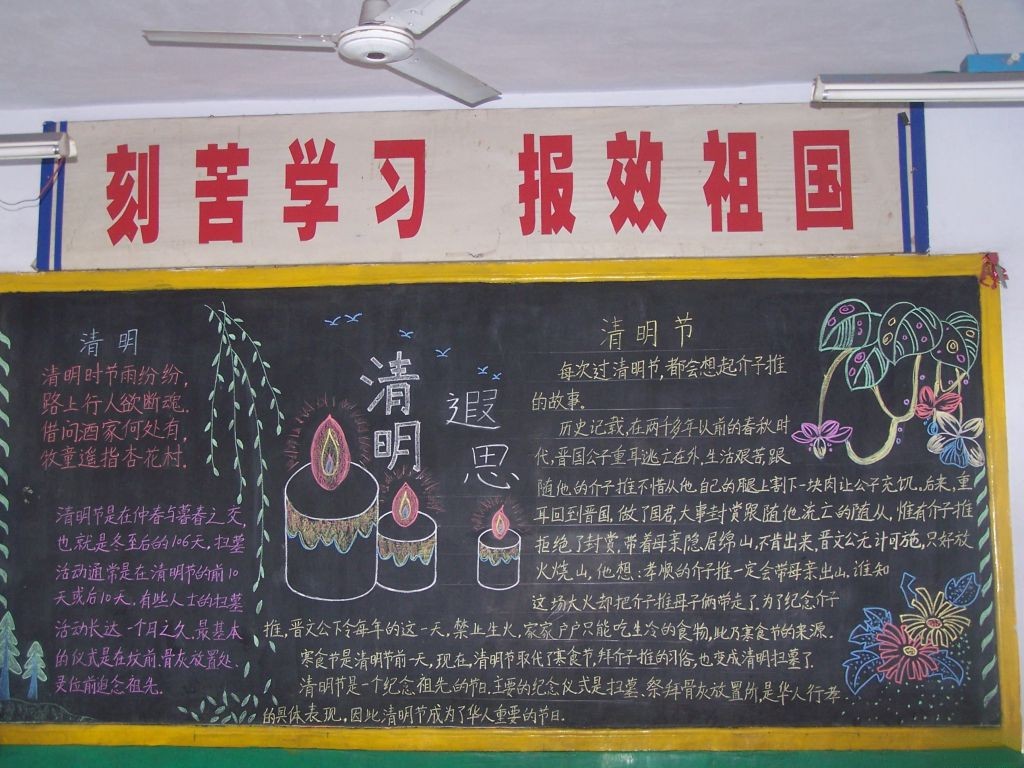 刻苦学习 报效祖国
清明
清明时节雨纷纷,
路上行人欲断魂.
借问酒家何处有,
牧童遥指杏花村.
清明节是在仲春与暮春之交,
也就是冬至后的106天.扫墓
活动通常是在清明节的前10
天或后10天.有些人士的扫墓
活动长达一个月之久.最基本
的仪式是在坟前.骨灰放置处.
灵位前追念祖先.
清明
遐思
清明节
每次过清明节,都会想起介子推
的故事.
历史记载,在两千多年以前的春秋时
代,晋国公子重耳逃亡在外,生活艰苦,跟
随他的介子推不惜从他自己的腿上割下一块肉让公子充饥.后来,重
耳回到晋国,做了国君,大事封赏跟随他流亡的随从,惟有介子推
拒绝了封赏,带着母亲隐居绵山,不肯出来,晋文公无计可施,只好放
火烧山,他想:孝顺的介子推一定会带母亲出山.谁知
这场大火却把介子推母子俩带走了,为了纪念介子
推,晋文公下令每年的这一天,禁止生火,家家户户只能吃生冷的食物,此乃寒食节的来源.
寒食节是清明节前一天,现在,清明节取代了寒食节,拜介子推的习俗,也变成清明扫墓了.
清明节是一个纪念祖先的节日.主要的纪念仪式是扫墓.祭拜骨灰放置所,是华人行孝
的具体表现,因此清明节成为了华人重要的节日.